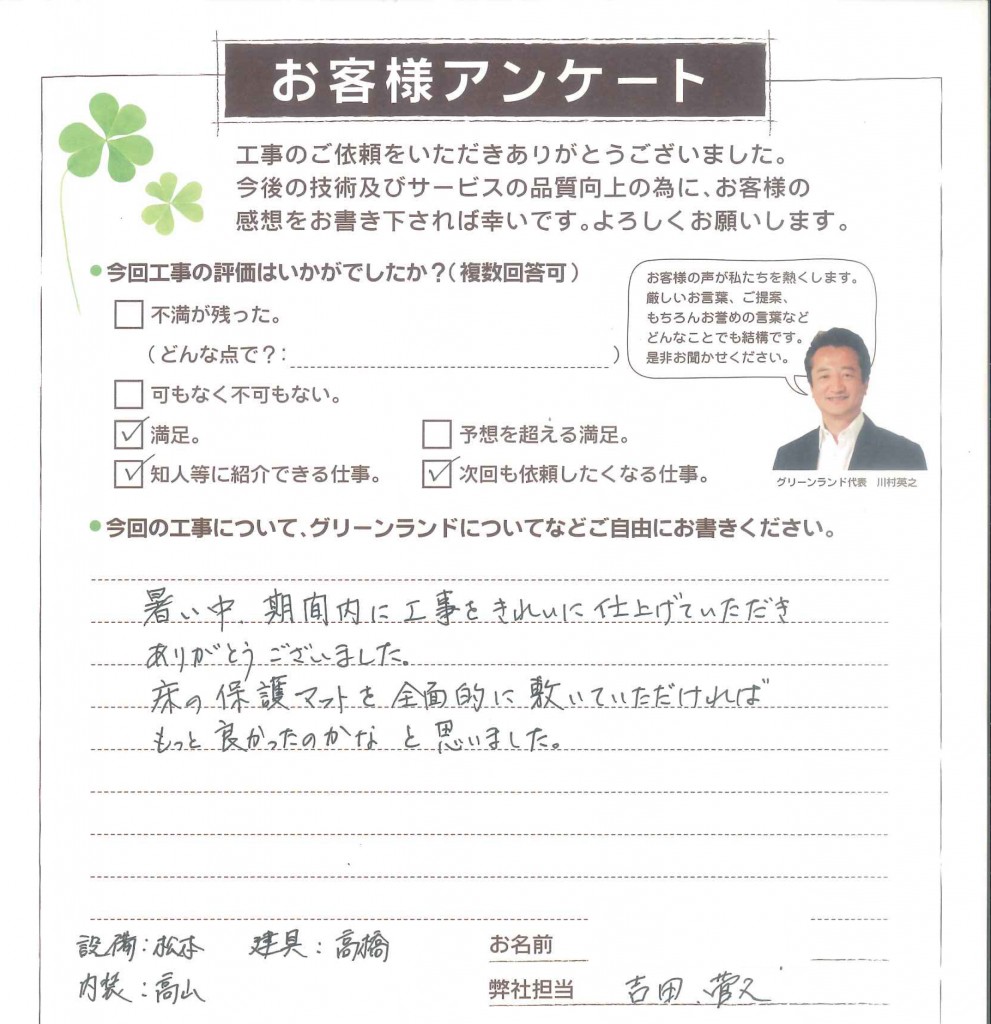 お客様アンケート
工事のご依頼をいただきありがとうございました。
今後の技術及びサービスの品質向上の為に、お客様の
感想をお書き下されば幸いです。よろしくお願いします。
●今回工事の評価はいかがでしたか？（複数回答可）
お客様の声が私たちを熱くします。
厳しいお言葉、ご提案、
もちろんお誉めの言葉など
どんなことでも結構です。
是非お聞かせください。
不満が残った。
（どんな点で？：　　　）
可もなく不可もない。
満足。　予想を超える満足。
知人等に紹介できる仕事。　次回も依頼したくなる仕事。
グリーンランド代表　川村英之
●今回の工事について、グリーンランドについてなどご自由にお書きください。
暑い中、期間内に工事をきれいに仕上げていただき
ありがとうございました。
床の保護マットを全面的に敷いていただければ
もっと良かったのかな と思いました。
設備：松本　建具：高橋　お名前
内装：高山　弊社担当　吉田、菅又